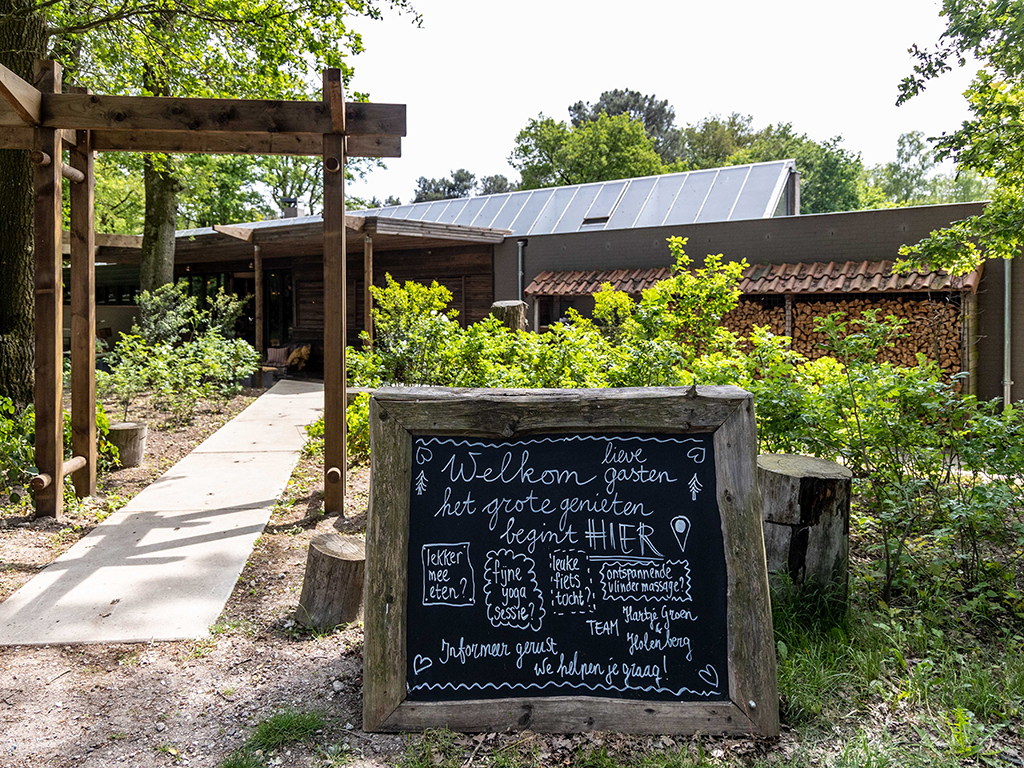 Welkom lieve gasten
het grote genieten
begint HIER
lekker mee eten?
fijne yoga sessie?
leuke fiets tocht?
ontspannende vlinder massage?
TEAM Hartje Groen & Holenberg
Informeer gerust
we helpen je graag!